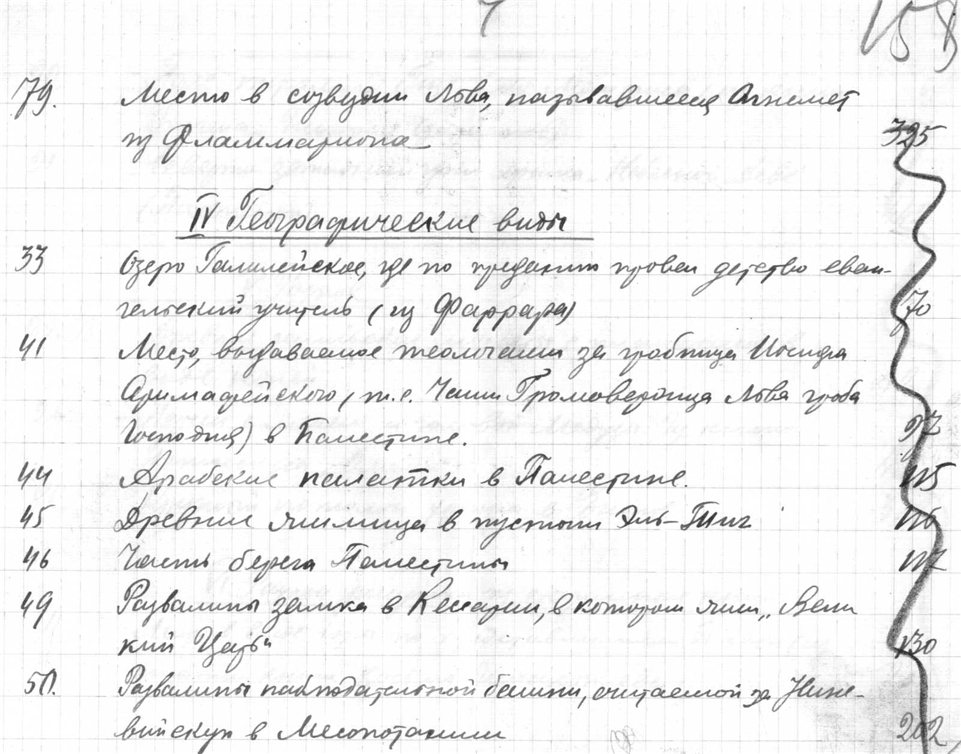 158
79. Место в созвездии Льва, называвшееся
из Фламмариона 325
IV Географические виды
33 Озеро Галилейское, где по преданию провел детство еван-
гельский учитель (из Фаррара) 70
41 Место, выдаваемое теологами за гробницу Иосифа
Аримафейского (т.е. Чаши Громовержца Льва гроба
Господня) в Палестине. 97
44 Арабские палатки в Палестине. 115
45 Древние жилища в пустыни Эль-Тиг 116
46 Часть берега Палестины 117
49 Развалины замка в Кесарии, в котором жил „Вели
кий Царь“ 130
50. Развалины наблюдательной башни, считаемой за Нине-
вийскую в Месопотамии 202